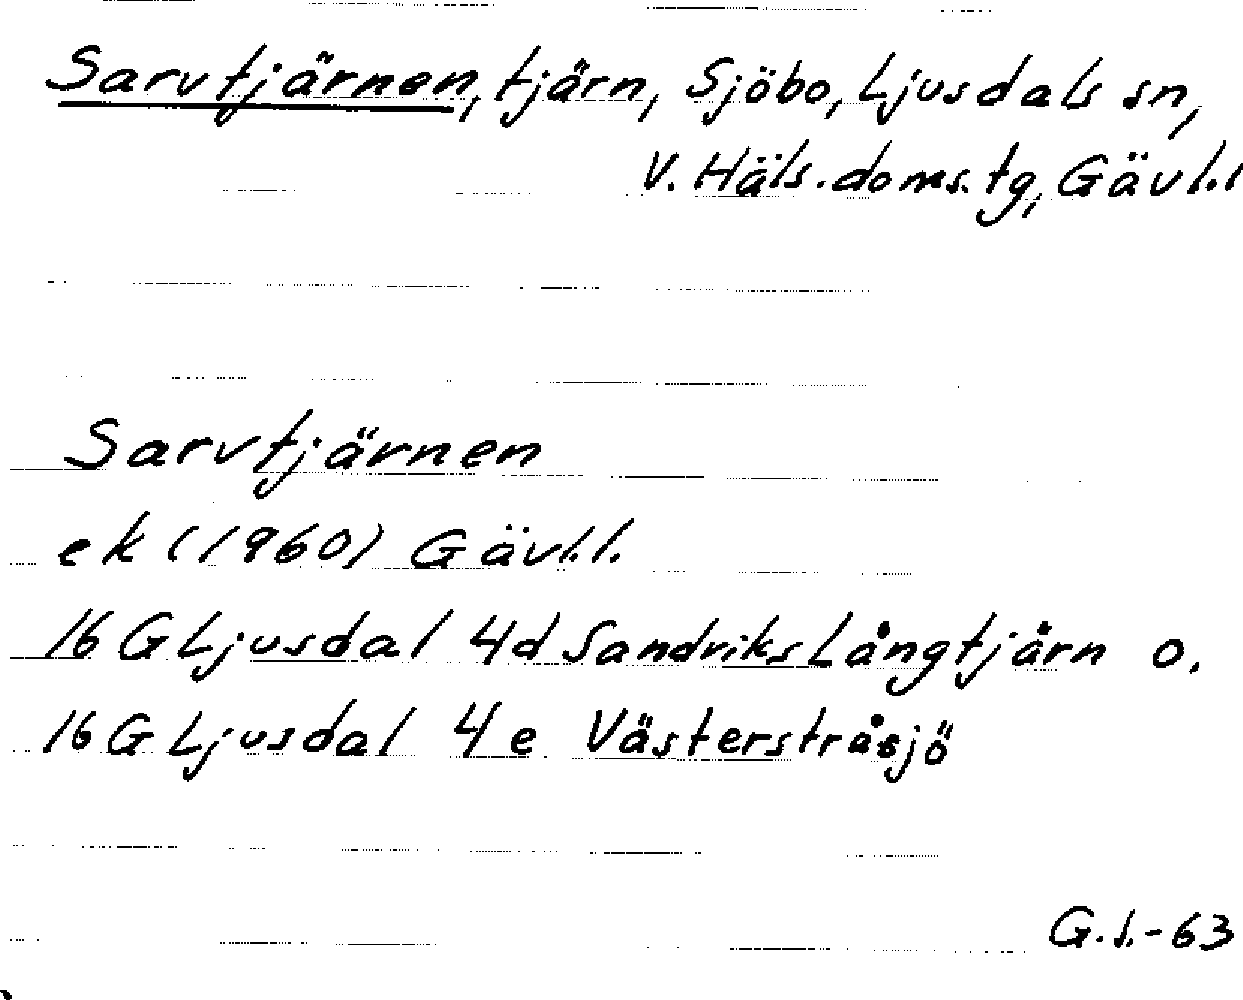 Sarvtjärnen, tjärn, Sjöbo, Ljusdals sn,
V. Häls. doms. tg, Gävl.l
Sarvtjärnen
ek (1960) Gävl.l.
16 G Ljusdal 4d Sandriks Långtjärn o.
16 G Ljusdal 4e Västerstråsjö
G.I.-63